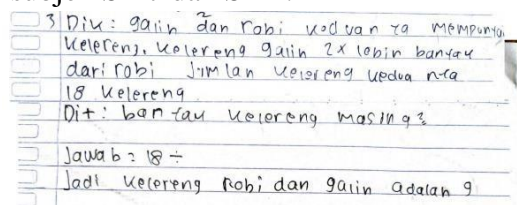 3 Dik: galih dan robi keduanya mempunyai
kelereng, kelereng galih 2x lebih banyak
dari robi jumlah kelereng kedua nya
18 kelereng
Dit: banyak kelereng masing2
Jawab = 18 ÷
Jadi kelereng Robi dan galih adalah 9